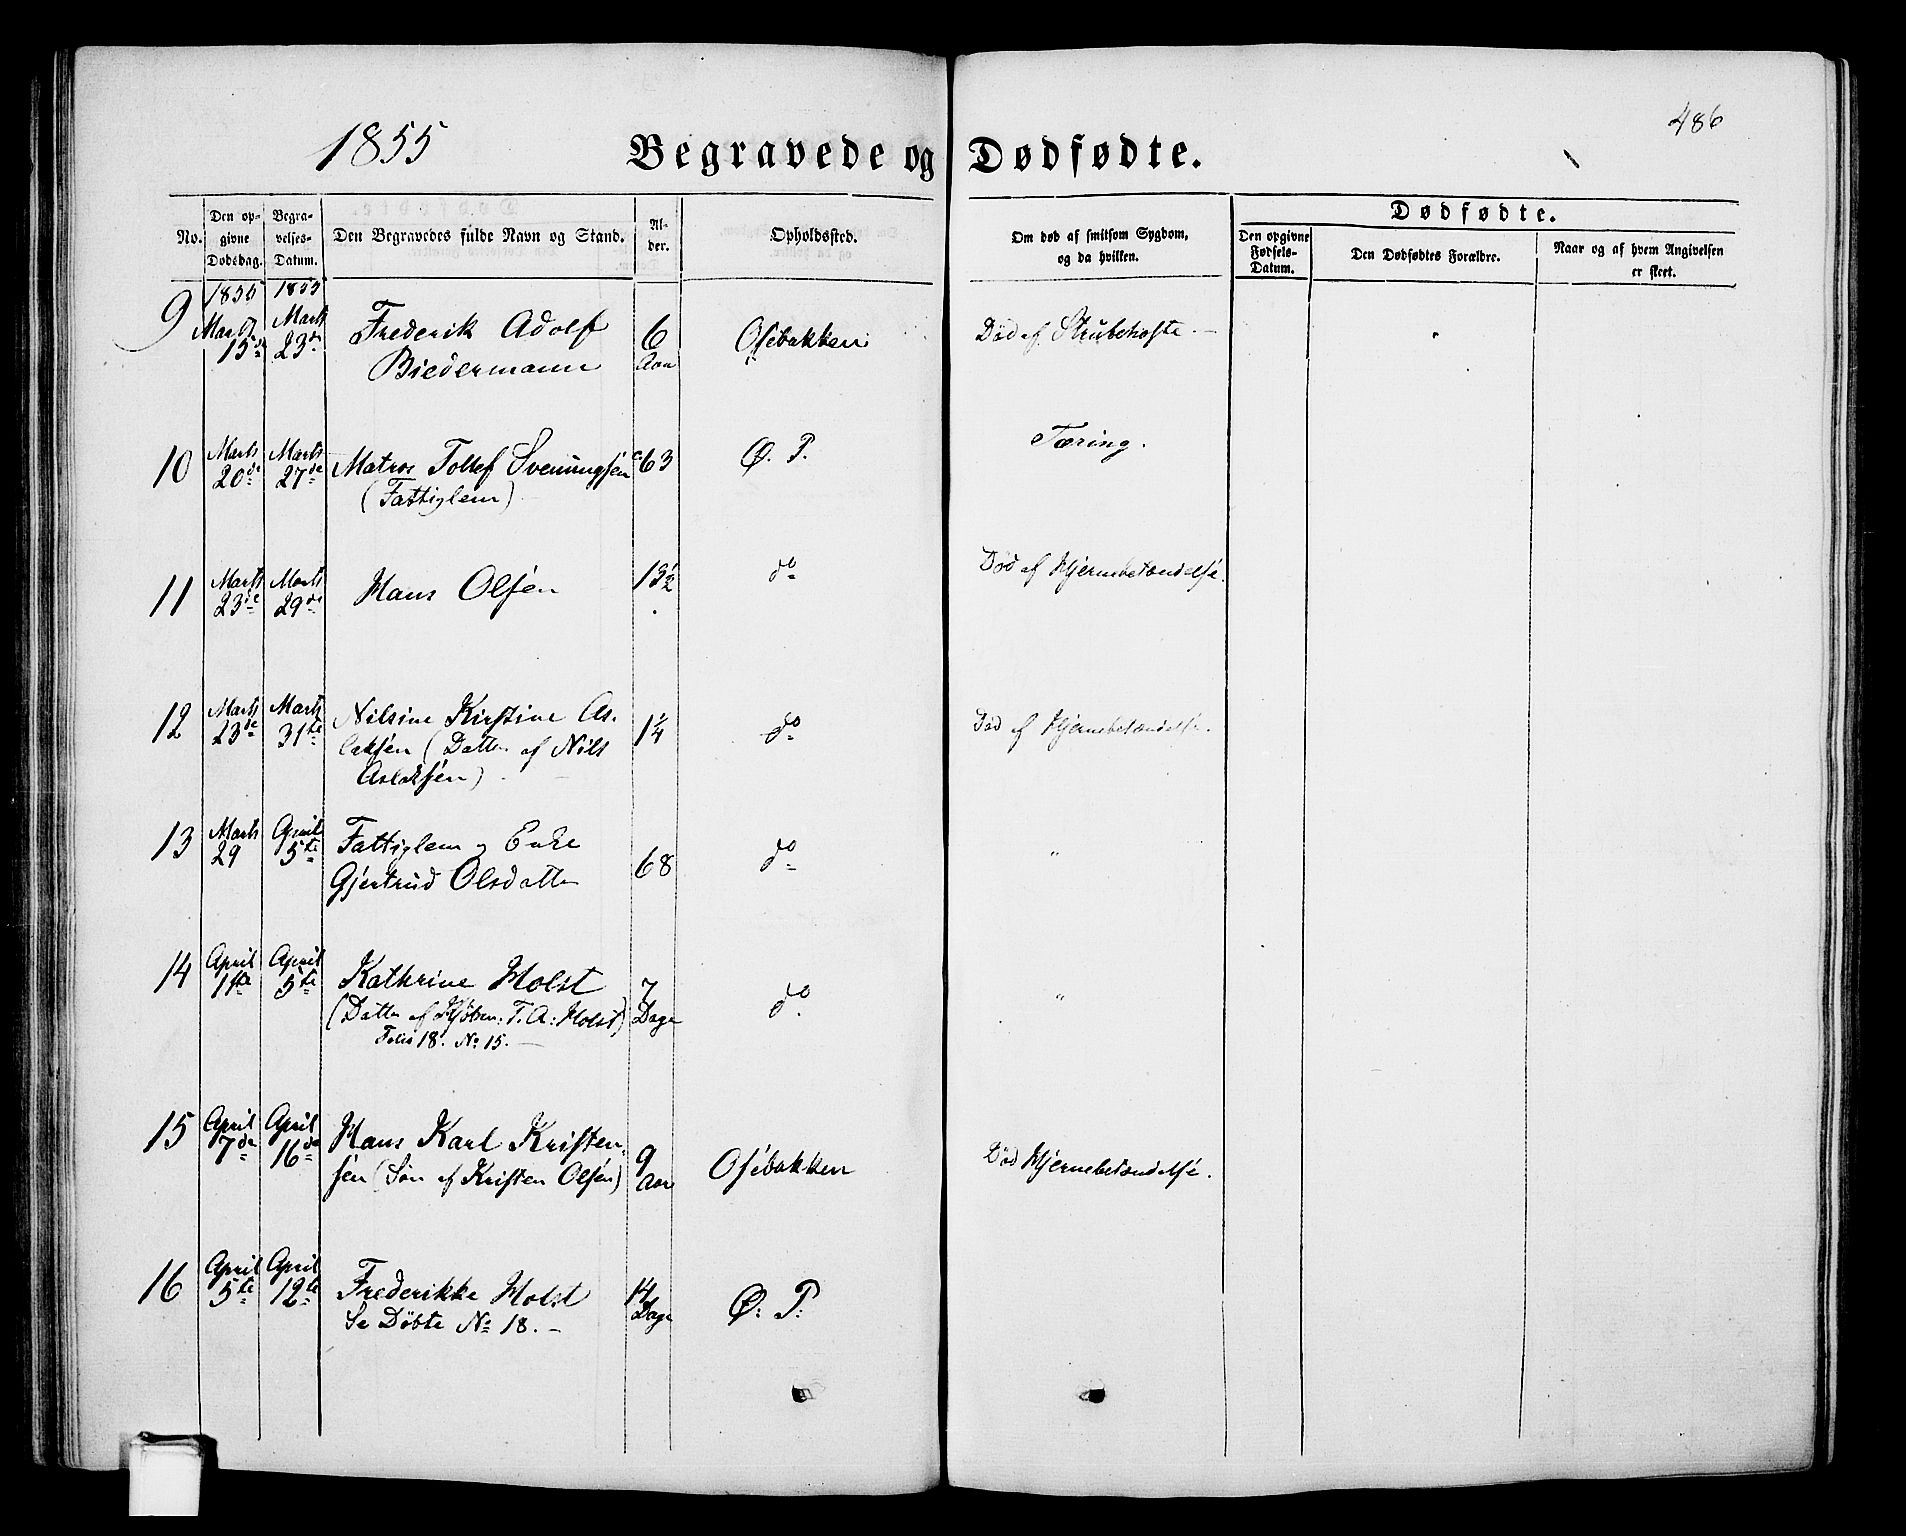 1855
486
Begravede og Dødfødte.
No.
Den op-
givne
Dødsdag.
Begra-
velses-
Datum.
Den Begravedes fulde Navn og Stand.
Al-
der.
Opholdssted.
Om død af smitsom Sygdom,
og da hvilken.
Dødfødte.
Den opgivne
Fødsels-
Datum.
Den Dødfødtes Forældre.
Naar og af hvem Angivelsen
er skeet.
9 1855 Marts 15de 1855 Marts 23de Frederik Adolf 6 Aar Osebakken Død af Strubehoste. —
Biedermann
10 Marts 20de Marts 27de Matros Tollef Svenungsen 63 Ø. P. Tæring.
(Fattiglem)
11 Marts 23de Marts 29de Hans Olsen 13½ do Død af Hjernebetændelse.
12 Marts 23de Marts 31te Nilsine Kirstine As- 1¼ do Død af Hjernebetændelse.
laksen (Datter af Nils
Aslaksen)
13 Marts 29 April 5te Fattiglem og Enke 68 do "
Gjertrud Olsdatter
14 April 1ste April 5te Kathrine Holst 7 Dage do "
(Datter af Kjøbm: T. A: Holst)
Folio 18. No 15. —
15 April 7de April 16de Hans Karl Kristen- 9 Aar Osebakken Død Hjernebetændelse.
sen (Søn af Kristen Olsen)
16 April 5te April 12te Frederikke Holst 14 Dage Ø: P:
Se Døbte No 18. —